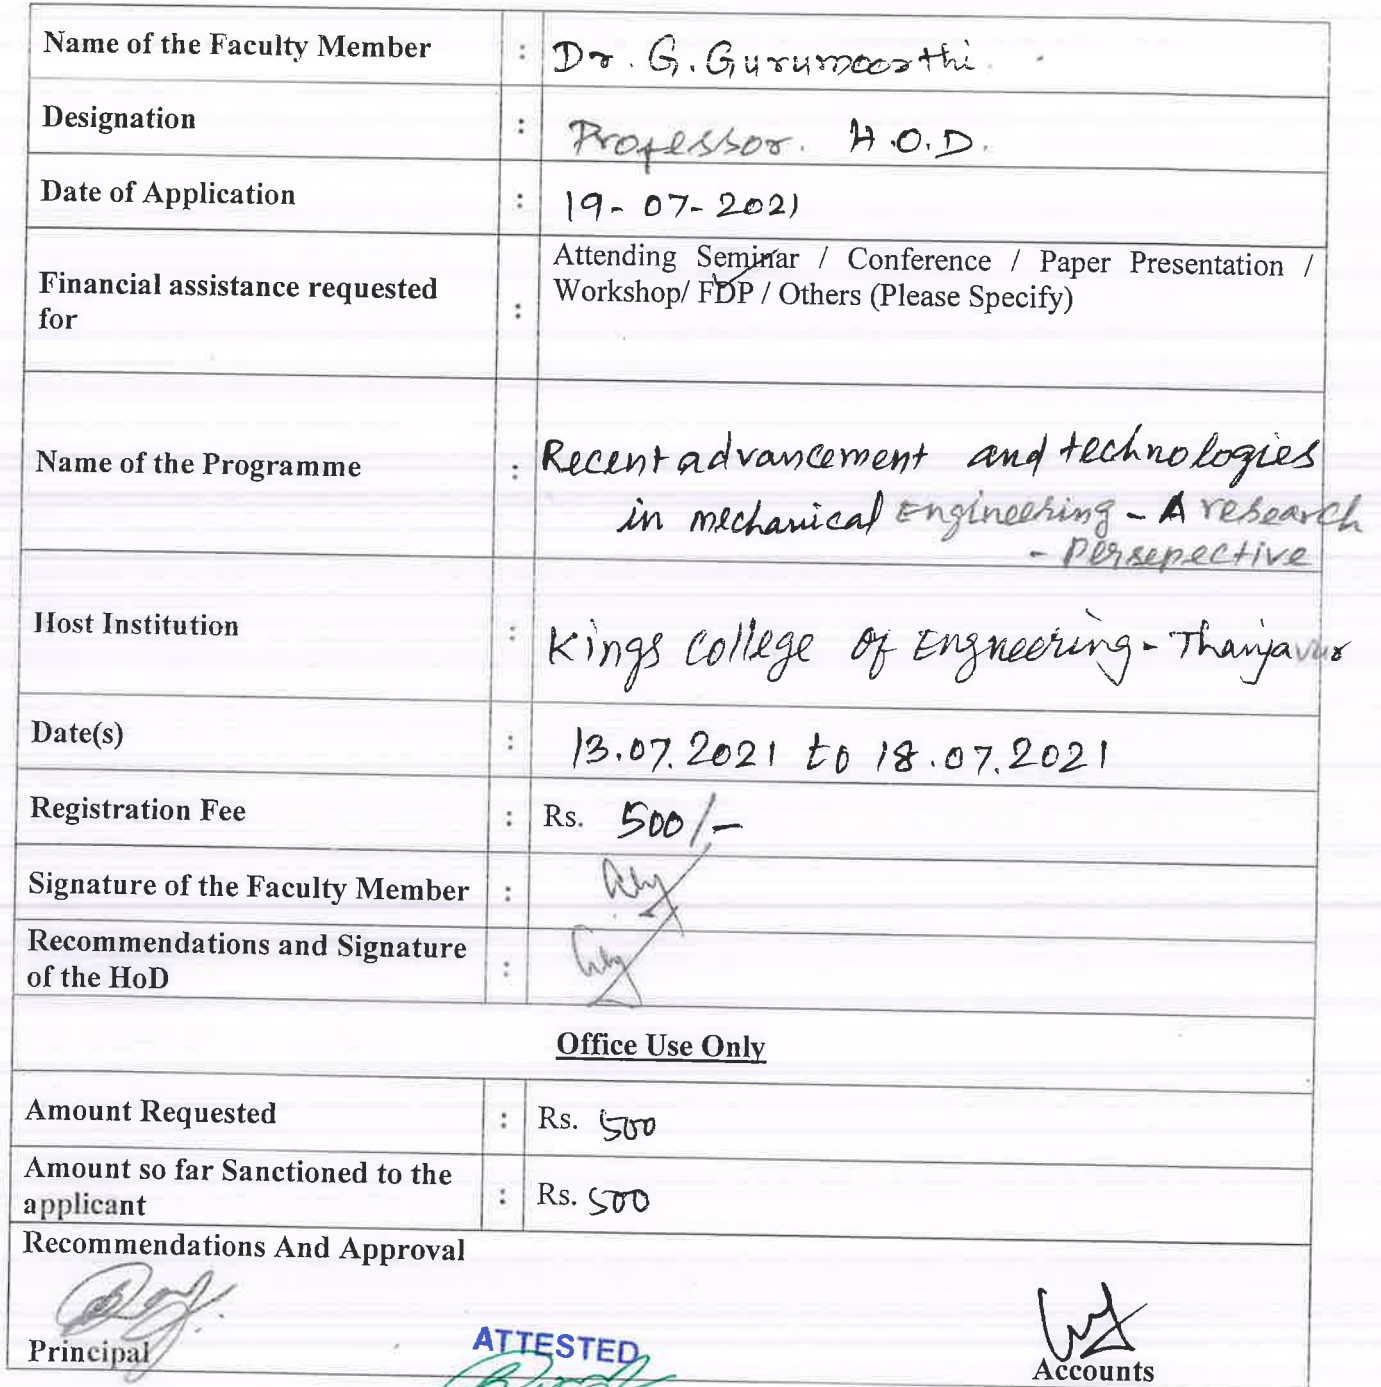 Name of the Faculty Member : Dr. G. Gurumoorthi.
Designation : Professor. H.O.D.
Date of Application : 19-07-2021
Financial assistance requested for : Attending Seminar / Conference / Paper Presentation /
Workshop/ FDP / Others (Please Specify)
Name of the Programme : Recent advancement and technologies
in mechanical Engineering - A research
- Persepective
Host Institution : Kings College of Engneering - Thanjavur
Date(s) : 13.07.2021 to 18.07.2021
Registration Fee : Rs. 500/-
Signature of the Faculty Member :
Recommendations and Signature
of the HoD :
Office Use Only
Amount Requested : Rs. 500
Amount so far Sanctioned to the
applicant : Rs. 500
Recommendations And Approval
Principal
ATTESTED
Accounts